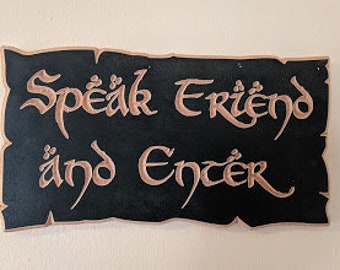 Speak Friend
and Enter